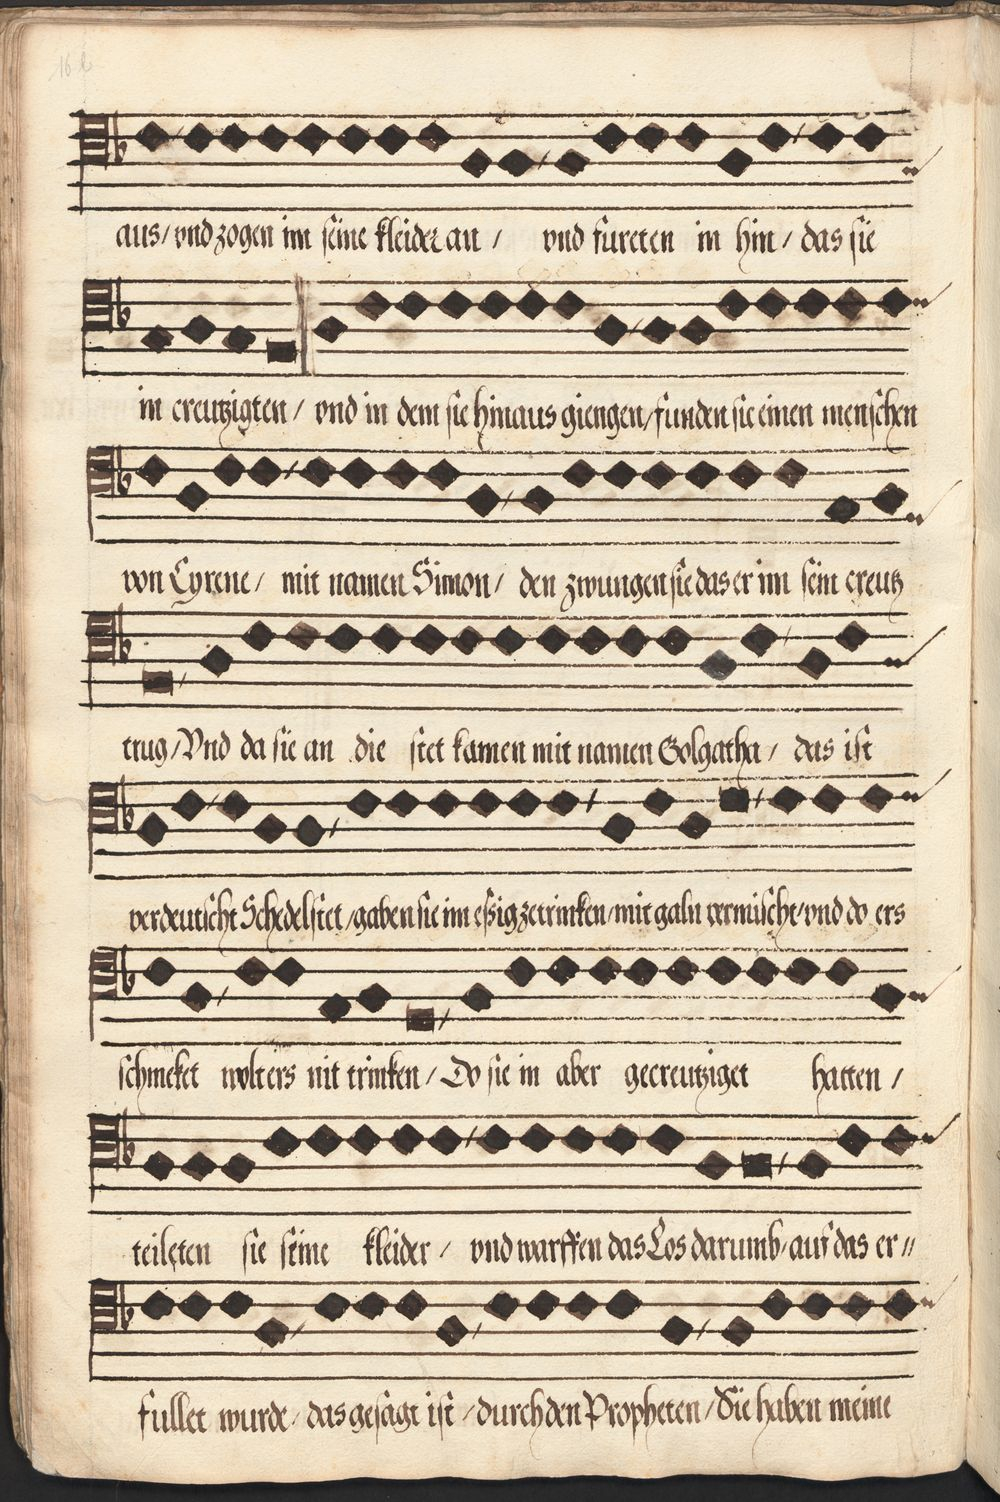 aus / vnd zogen im seine kleider an / vnd fureten in hin / das sie
in creutzigten / vnd in dem sie hinaus giengen / funden sie einen menschen
von Cyrene / mit namen Simon / den zwungen sie das er im sein creutz
trug / Vnd da sie an die stet kamen mit namen Golgatha / das ist
verdeutscht Schedelstet / gaben sie im essig zetrinken / mit galn vermischt / vnd do ers
schmeket wolt ers nit trinken / Do sie in aber gecreutziget hatten /
teileten sie seine kleider / vnd warffen das Los darumb / auf das er //
fullet wurde / das gesagt ist / durch den Propheten / Sie haben meine